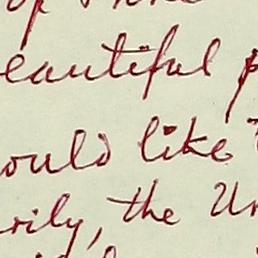 eautiful p
ould like
rily, the Un